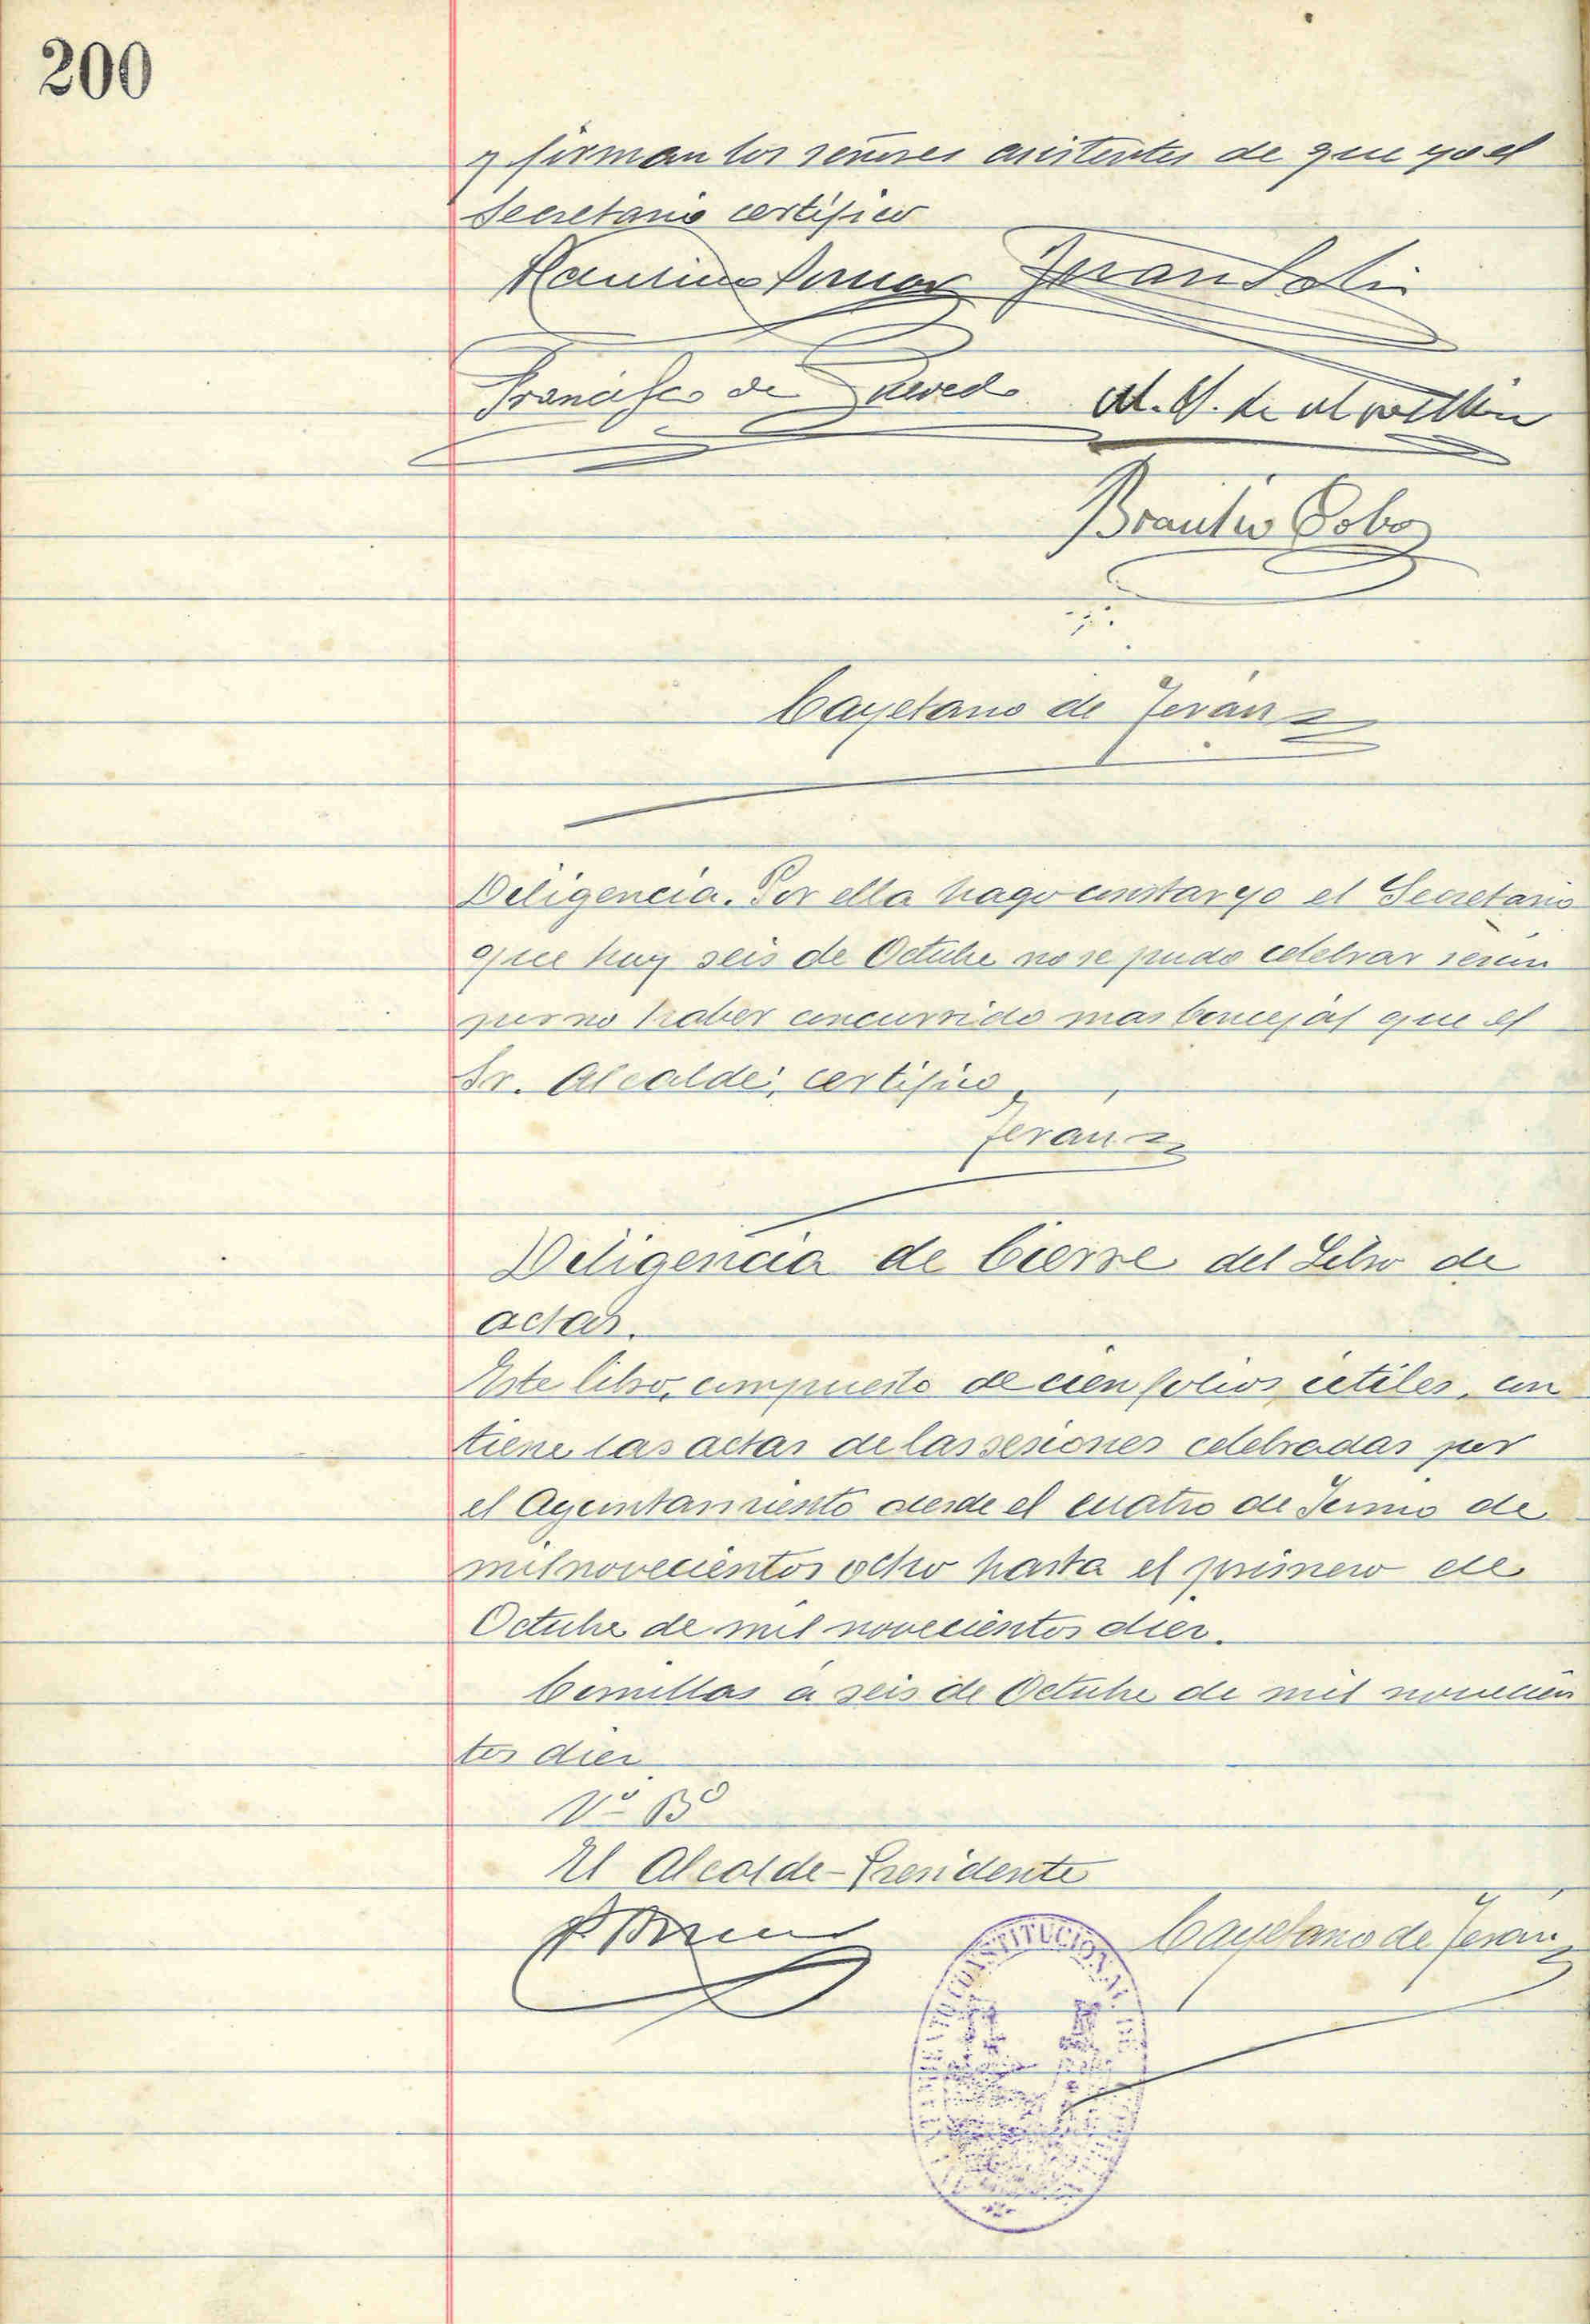 200
y firman los señores asistentes de que yo el
Secretario certifico
Juan Solis
Francisco de Quevedo M. S. de
Braulio Cobo
Cayetano de Terán
Diligencia. Por ella hago constar yo el Secretario
que hoy seis de Octubre no se pudo celebrar sesión
por no haber concurrido mas Concejal que el
Sr. Alcalde; certifico
Terán
Diligencia de Cierre del Libro de
actas.
Este libro, compuesto de cien folios útiles, con
tiene las actas de las sesiones celebradas por
el Ayuntamiento desde el cuatro de Junio de
mil novecientos ocho hasta el primero de
Octubre de mil novecientos diez.
Comillas á seis de Octubre de mil novecien
tos diez
Vº Bº
El Alcalde-Presidente
Cayetano de Terán
AYUNTAMIENTO CONSTITUCIONAL DE